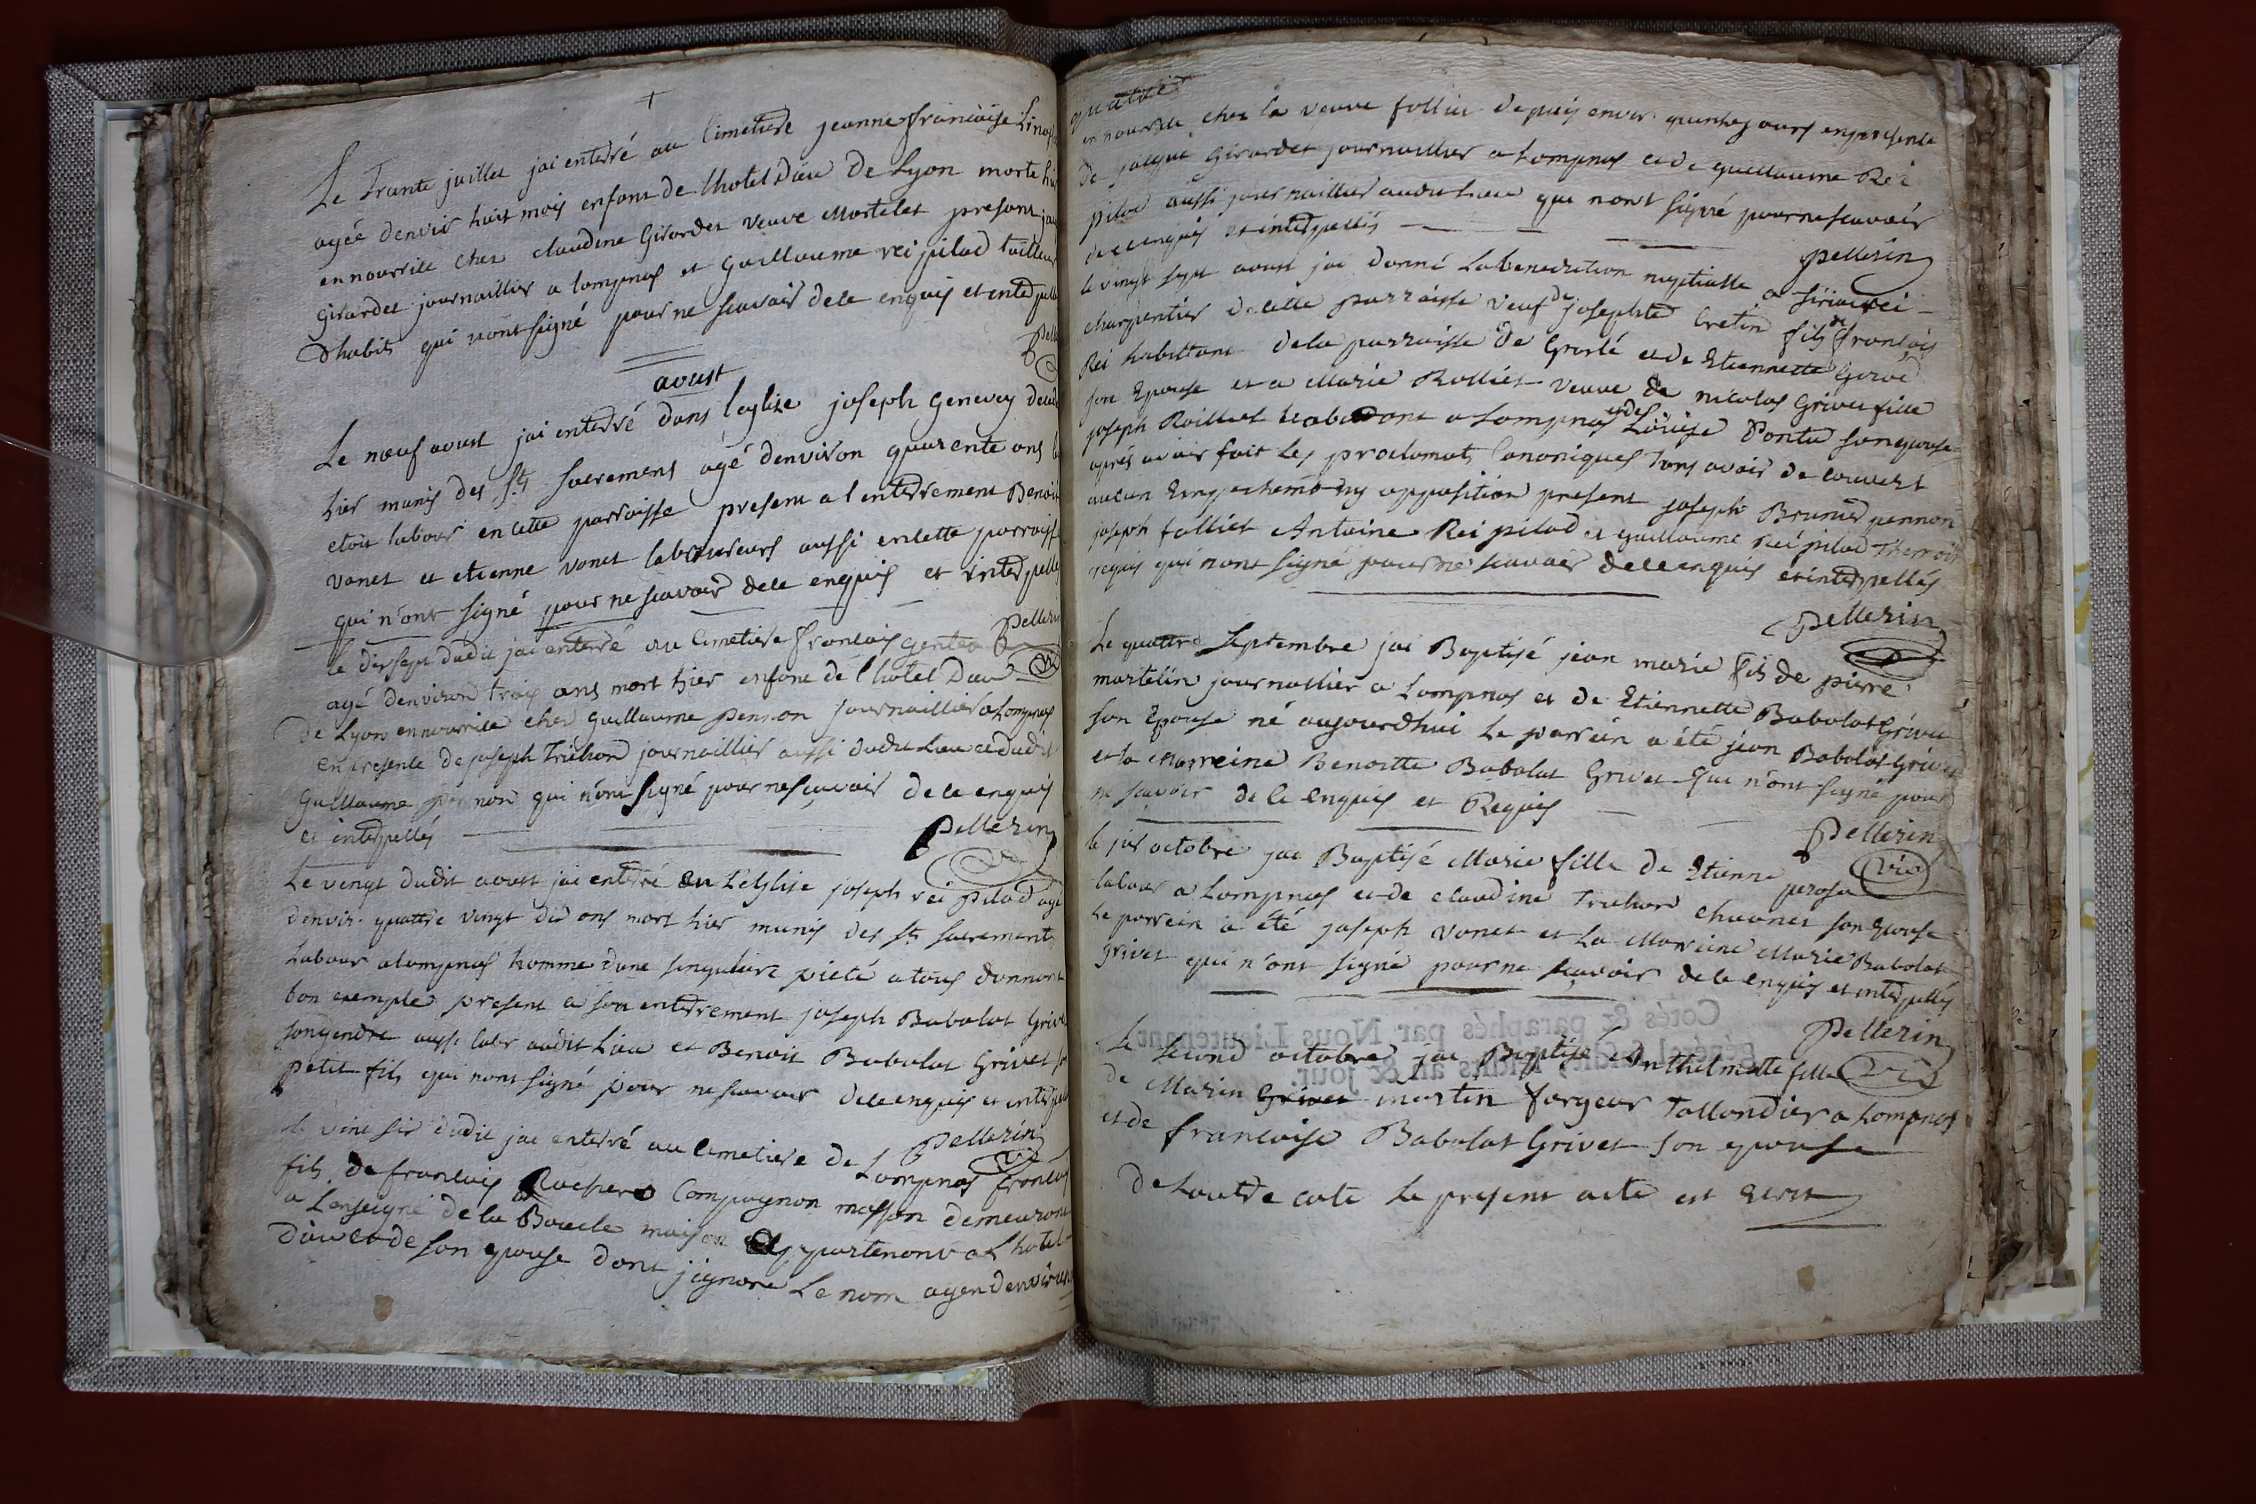 Le Trante juillet jai enterré au Cimetiere jeanne francoise
agée denvir huit mois enfant de lhotel Dieu de Lyon morte hier
en nourrice chez claudine Girardet veuve Martelet present
Girardet journaillier a lompnas et Guillaume rei pilad tailleur
Dhabits qui nont signé pour ne scavoir de ce enquis et interpellés
aoust
Le neuf aoust jai enterré dans leglise joseph Genevey
hier munis des sts sacremens agé denviron quarente ans
etoit labour en cette parroisse present a lenterrement Benoit
vanet et etienne vanet laboureurs aussi en cette parroisse
qui n'ont signé pour ne scavoir de ce enquis et interpellés
Pellerin
le dixsept dudit jai enterré au Cimetiere francois
agé denviron trois ans mort hier enfant de l'hotel Dieu
De Lyon en nourrice chez Guillaume pennon journaillier a Lompnas
en presence de joseph Trichon journaillier aussi dudit Lieu et dudit
Guillaume pennon qui n'ont signé pour ne scavoir de ce enquis
et interpellés
Pellerin
Le vingt dudit aoust jai enterré en L'eglise joseph rei Pilad agé
denvir. quattre vingt dix ans mort hier munis des sts sacrements
Labour a lompnas homme d'une singuliere pieté a tous donnant
bon exemple present a son enterrement joseph Babolat Grivet
son gendre aussi labr audit Lieu et Benoit Babolat Grivet
petit fils qui nont signé pour ne scavoir de ce enquis et interpellés
Pellerin
le vint six dudit jai enterré au Cimetiere de Lompnas francois
fils de francois Rocher Compagnon masson demeurant
a Lenseigne de la Boucle maison appartenant a L'hotel
Dieu et de son epouse dont jignore Le nom agé denviron
quatre
en nourrice chez la veuve follier depuis envir quinze jours en presence
de jacque Girardet journaillier a Lompnas et de guillaume Rei
pilad aussi journaillier audit Lieu qui nont signé pour ne scavoir
de ce enquis et interpellés
Pellerin
le vingt sept aoust jai donné la benediction nuptialle a
charpentier de cette parroisse veuf de josephte Cretin fils de francois
Rei habittant de la parroisse de Groslé et de Etiennette
son Epouse et a Marie Rolliet veuve de nicolas Grivet fille
joseph Roilliet habitant a Lompnas et de Loüise Pontu son epouse
apres avoir fait les proclamats Canoniques sans avoir decouvert
aucun Empechemt ny opposition present joseph Brunier pennon
joseph folliet Antoine Rei pilad et guillaume Rei pilad Themoins
requis qui nont signé pour ne scavoir de ce enquis et interpellés
Pellerin
Le quattre Septembre jai Baptisé jean marie fils de pierre
martelin journallier a Lompnas et de Etiennette Babolat Grivet
son Epouse né aujourdhui Le parrein a été jean Babolat Grivet
et la Marreine Benoitte Babolat Grivet qui n'ont signé pour
ne scavoir de ce Enquis et Requis
Pellerin
le six octobre jai Baptisé Marie fille de Etienne
labour a Lompnas et de claudine Trichon son Epouse
Le parrein a été joseph vanet et La Marreine Marie Babolat
Grivet qui n'ont signé pour ne scavoir de ce enquis et interpellés
Pellerin
Cotés & paraphés par Nous Lieutenant
Général
Le second octobre jai Baptisé Anthelmette fille
de Marin Grivet martin forgeur Tallandier a Lompnas
et de francoise Babolat Grivet son epouse
De Lautre cote Le present acte est Ecrit